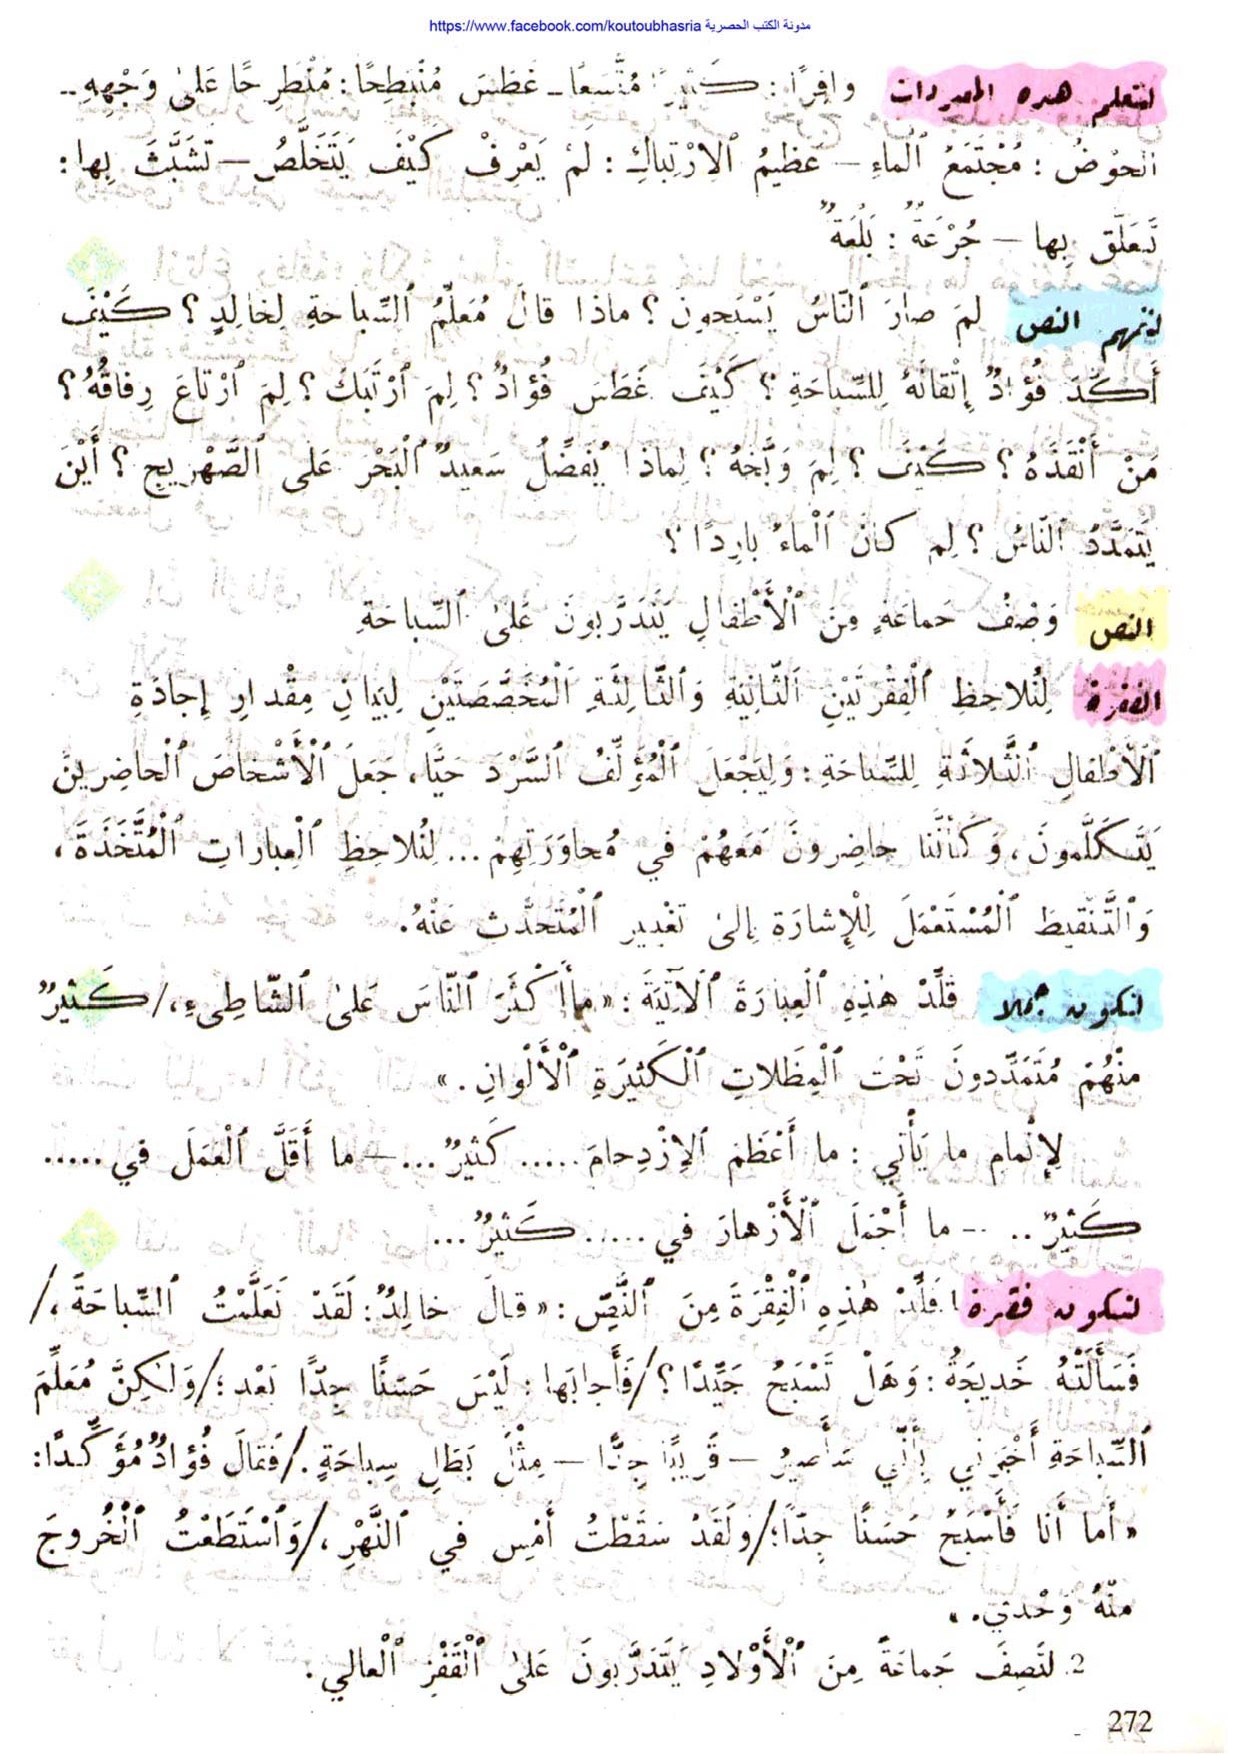 مدونة الكتب الحصرية https://www.facebook.com/koutoubhasria
لنتعلم هذه المفردات وافِرًا: كَثيرًا مُتَّسَعًا ـ غَطَسَ مُنْبَطِحًا: مُنْطَرِحًا عَلىٰ وَجْهِهِ ـ
الحوْضُ: مُجْتَمَعُ ٱلْماءِ — عَظيمُ ٱلِارْتِباكِ: لَمْ يَعْرِفْ كَيْفَ يَتَخَلَّصُ — تَشَبَّثَ بِها:
تَعَلَّقَ بِها — جُرْعَةٌ: بَلْعَةٌ
لنفهم النص لِمَ صارَ ٱلنّاسُ يَسْبَحونَ؟ ماذا قالَ مُعَلِّمُ ٱلسِّباحَةِ لِخالِدٍ؟ كَيْفَ
أَكَّدَ فُؤادٌ إِتْقانَهُ لِلسِّباحَةِ؟ كَيْفَ غَطَسَ فُؤادٌ؟ لِمَ ٱرْتَبَكَ؟ لِمَ ٱرْتاعَ رِفاقُهُ؟
مَنْ أَنْقَذَهُ؟ كَيْفَ؟ لِمَ وَبَّخَهُ؟ لِماذا يُفَضِّلُ سَعيدٌ ٱلْبَحْرَ عَلى ٱلصَّهْريجِ؟ أَيْنَ
يَتَمَدَّدُ ٱلنّاسُ؟ لِمَ كانَ ٱلْماءُ بارِدًا؟
النص وَصْفُ جَماعَةٍ مِنَ ٱلْأَطْفالِ يَتَدَرَّبونَ عَلىٰ ٱلسِّباحَةِ
الفقرة لِنُلاحِظِ ٱلْفِقْرَتَيْنِ ٱلثّانِيَةِ وَٱلثّالِثَةِ ٱلْمُخَصَّصَتَيْنِ لِبَيانِ مِقْدارِ إِجادَةِ
ٱلْأَطْفالِ ٱلثَّلاثَةِ لِلسِّباحَةِ: وَلِيَجْعَلَ ٱلْمُؤَلِّفُ ٱلسَّرْدَ حَيًّا، جَعَلَ ٱلْأَشْخاصَ ٱلْحاضِرينَ
يَتَكَلَّمونَ، وَكَأَنَّنا حاضِرونَ مَعَهُمْ في مُحاوَرَتِهِمْ... لِنُلاحِظِ ٱلْعِباراتِ ٱلْمُتَّخَذَةَ،
وَٱلتَّنْقيطَ ٱلْمُسْتَعْمَلَ لِلْإِشارَةِ إِلىٰ تَغْييرِ ٱلْمُتَحَدَّثِ عَنْهُ.
لنكون جملا قَلِّدْ هٰذِهِ ٱلْعِبارَةَ ٱلْآتِيَةَ: «ما أَكْثَرَ ٱلنّاسَ عَلىٰ ٱلشّاطِىءِ،/كَثيرٌ
مِنْهُمْ مُتَمَدِّدونَ تَحْتَ ٱلْمِظَلّاتِ ٱلْكَثيرَةِ ٱلْأَلْوانِ.»
لِإِتْمامِ ما يَأْتي: ما أَعْظَمَ ٱلِازْدِحامَ ..... كَثيرٌ ... — ما أَقَلَّ ٱلْعَمَلَ في .....
كَثيرٌ .. — ما أَجْمَلَ ٱلْأَزْهارَ في ..... كَثيرٌ ...
لنكون فقرة 1. قَلِّدْ هٰذِهِ ٱلْفِقْرَةَ مِنَ ٱلنَّصِّ: «قالَ خالِدٌ: لَقَدْ تَعَلَّمْتُ ٱلسِّباحَةَ،/
فَسَأَلَتْهُ خَديجَةُ: وَهَلْ تَسْبَحُ جَيِّدًا؟/فَأَجابَها: لَيْسَ حَسَنًا جِدًّا بَعْد؛/وَلٰكِنَّ مُعَلِّمَ
ٱلسِّباحَةِ أَخْبَرَني بِأَنّي سَأَصيرُ — قَريبًا جِدًّا — مِثْلَ بَطَلِ سِباحَةٍ./فَقالَ فُؤادٌ مُؤَكِّدًا:
«أَما أَنا فَأَسْبَحُ حَسَنًا جِدًّا؛/وَلَقَدْ سَقَطْتُ أَمْسِ في ٱلنَّهْرِ،/وَٱسْتَطَعْتُ ٱلْخُروجَ
مِنْهُ وَحْدي.»
2. لنَصِفَ جَماعَةً مِنَ ٱلْأَوْلادِ يَتَدَرَّبونَ عَلىٰ ٱلْقَفْزِ ٱلْعالي.
272